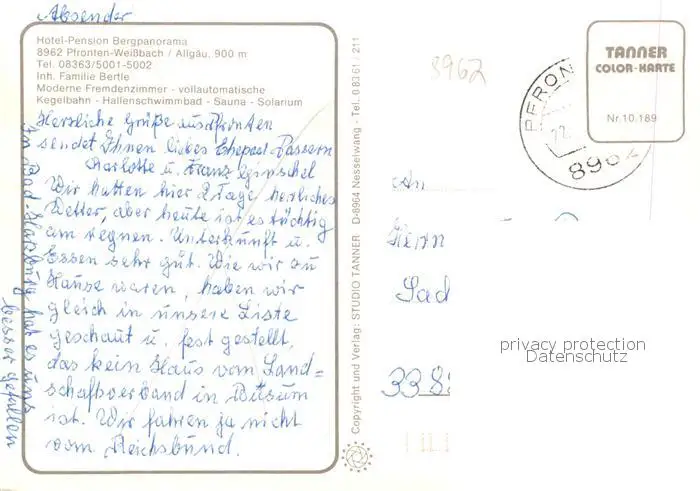 Absender
Hotel-Pension Bergpanorama
8962 Pfronten-Weißbach / Allgäu, 900 m
Tel. 08363/5001-5002
Inh. Familie Bertle
Moderne Fremdenzimmer - vollautomatische
Kegelbahn - Hallenschwimmbad - Sauna - Solarium
Herzliche Grüße aus Pfronten
sendet Ihnen liebes Ehepaar
Charlotte u. Franz
Wir hatten hier 2 Tage herrliches
Wetter, aber heute ist es tüchtig
am regnen. Unterkunft u.
Essen sehr gut. Wie wir zu
Hause waren, haben wir
gleich in unsere Liste
geschaut u. fest gestellt,
das kein Haus vom Land=
schaftsverband in Büsum
ist. Wir fahren ja nicht
vom Reichsbund.
In Bad-Harzburg hat es uns
besser gefallen
Copyright und Verlag: STUDIO TANNER D-8964 Nesselwang - Tel. 0 83 61 / 211
8962
TANNER
COLOR-KARTE
Nr. 10.189
PFRON
22.
8962
An
Sad
privacy protection
Datenschutz
338